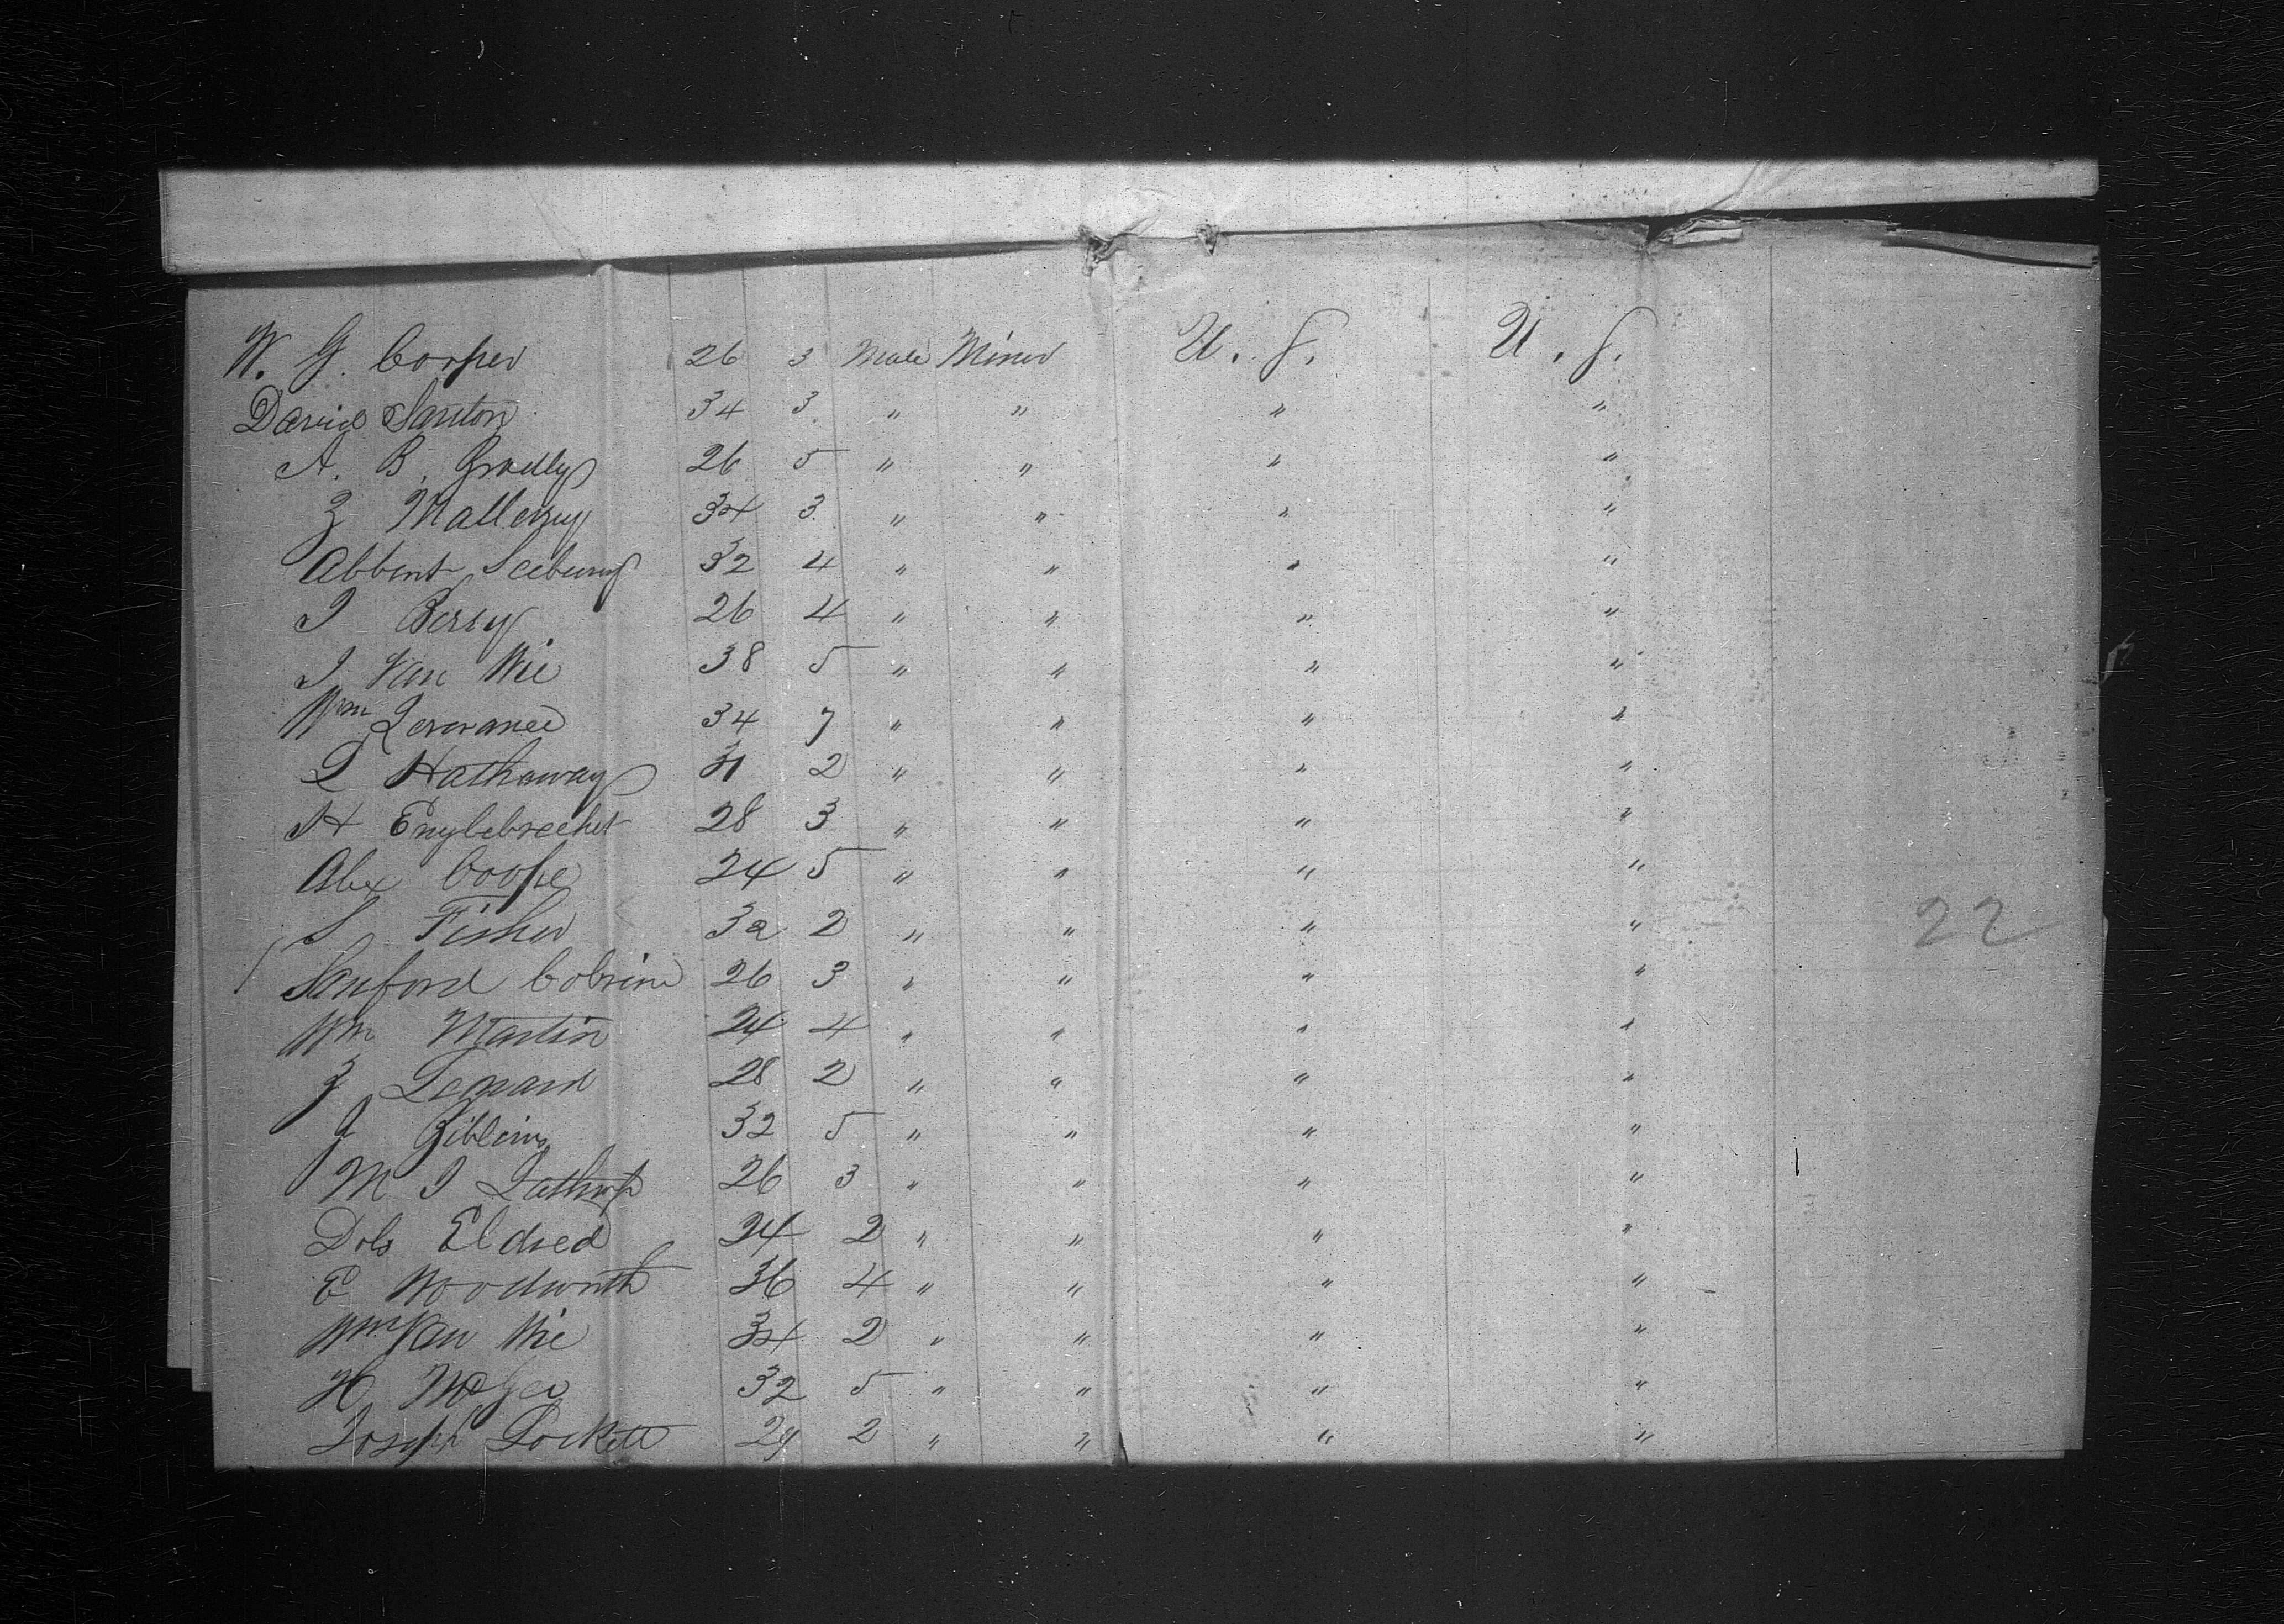 W. G. Cooper 26 3 Male Miner U. S. U. S.
David Santon 34 3 " " " "
A. B. Gradly 26 5 " " " "
Z Mallery 34 3 " " " "
Abbent Seebury 32 4 " " " "
J Berry 26 4 " " " "
J Van Wie 38 5 " " " "
Wm 34 7 " " " "
L Hathaway 31 2 " " " "
H Englebrechet 28 3 " " " "
Alex Coope 24 5 " " " "
S Fisher 32 2 " " " "
22
Sanford 26 3 " " " "
Wm Martin 24 4 " " " "
Z Lenard 28 2 " " " "
J Giblins 32 5 " " " "
M J Lathrop 26 3 " " " "
Dols Eldred 24 2 " " " "
E Woodworth 36 4 " " " "
Wm Van Wie 34 2 " " " "
H McGee 32 5 " " " "
Joseph Lockett 24 2 " " " "